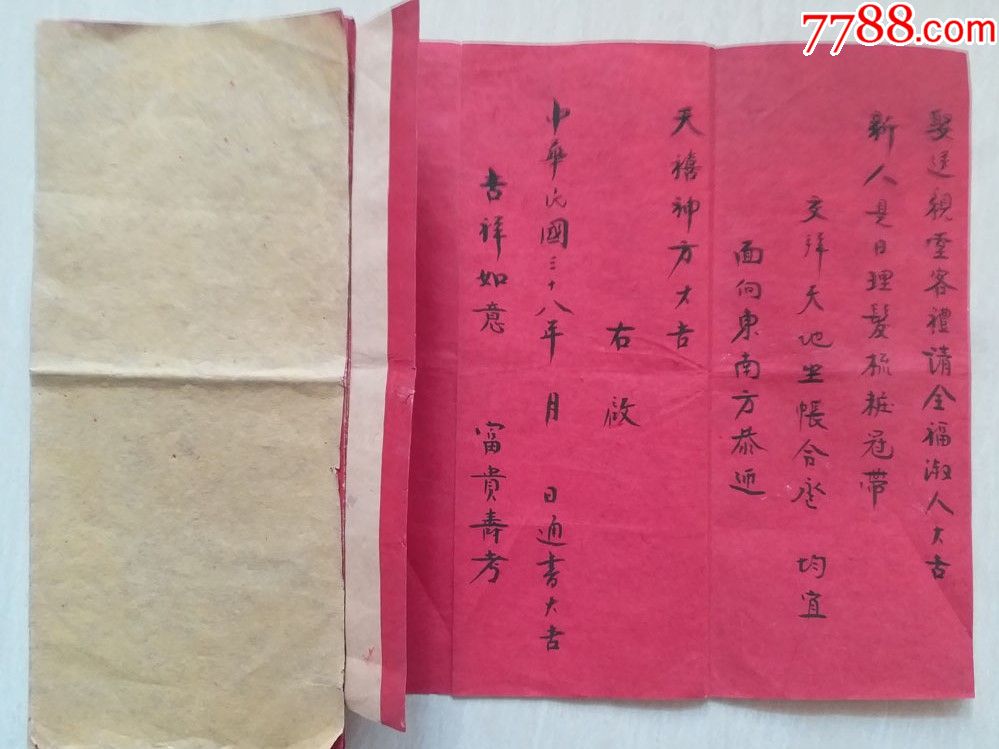 7788.com
娶送親堂客禮請全福淑人大吉
新人是日理髮梳粧冠帶
交拜天地坐帳合卺 均宜
面向東南方恭迎
天禧神方大吉
右啟
中華民國三十八年 月 日通書大吉
吉祥如意 富貴壽考